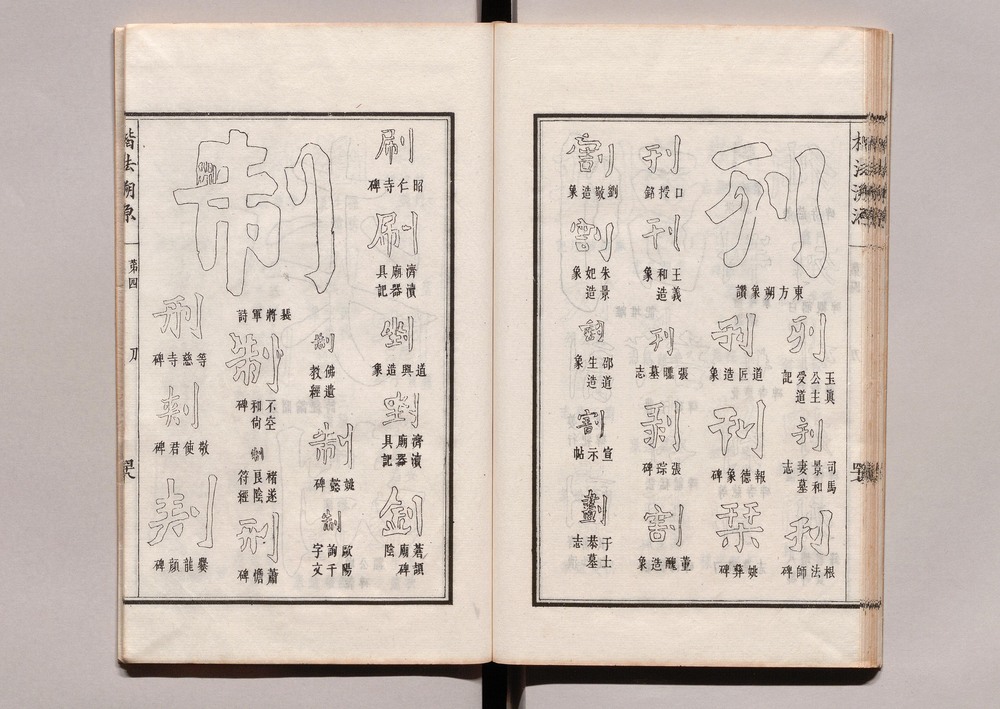 列
東方朔象讚
列
玉真公主受道記
列
司馬景和妻墓志
列
根法師碑
刊
道匠造象
刊
報德象碑
栞
姚彝碑
刊
口授銘
刊
王義和造象
刊
張䵻墓志
剥
張琮碑
割
董醜造象
割
劉敬造象
割
朱景妃造象
割
邵道生造象
割
宣示帖
劃
于士恭墓志
刷
昭仁寺碑
刷
濟瀆廟器具記
剉
道興造象
剉
濟瀆廟器具記
劍
蒼頡廟碑陰
制
裴將軍詩
制
佛遺教經
制
姚懿碑
制
歐陽詢千字文
制
不空和尚碑
制
褚遂良陰符經
刑
蕭憺碑
刑
等慈寺碑
刺
敬使君碑
刺
爨龍顏碑
楷法溯原
第四
刀